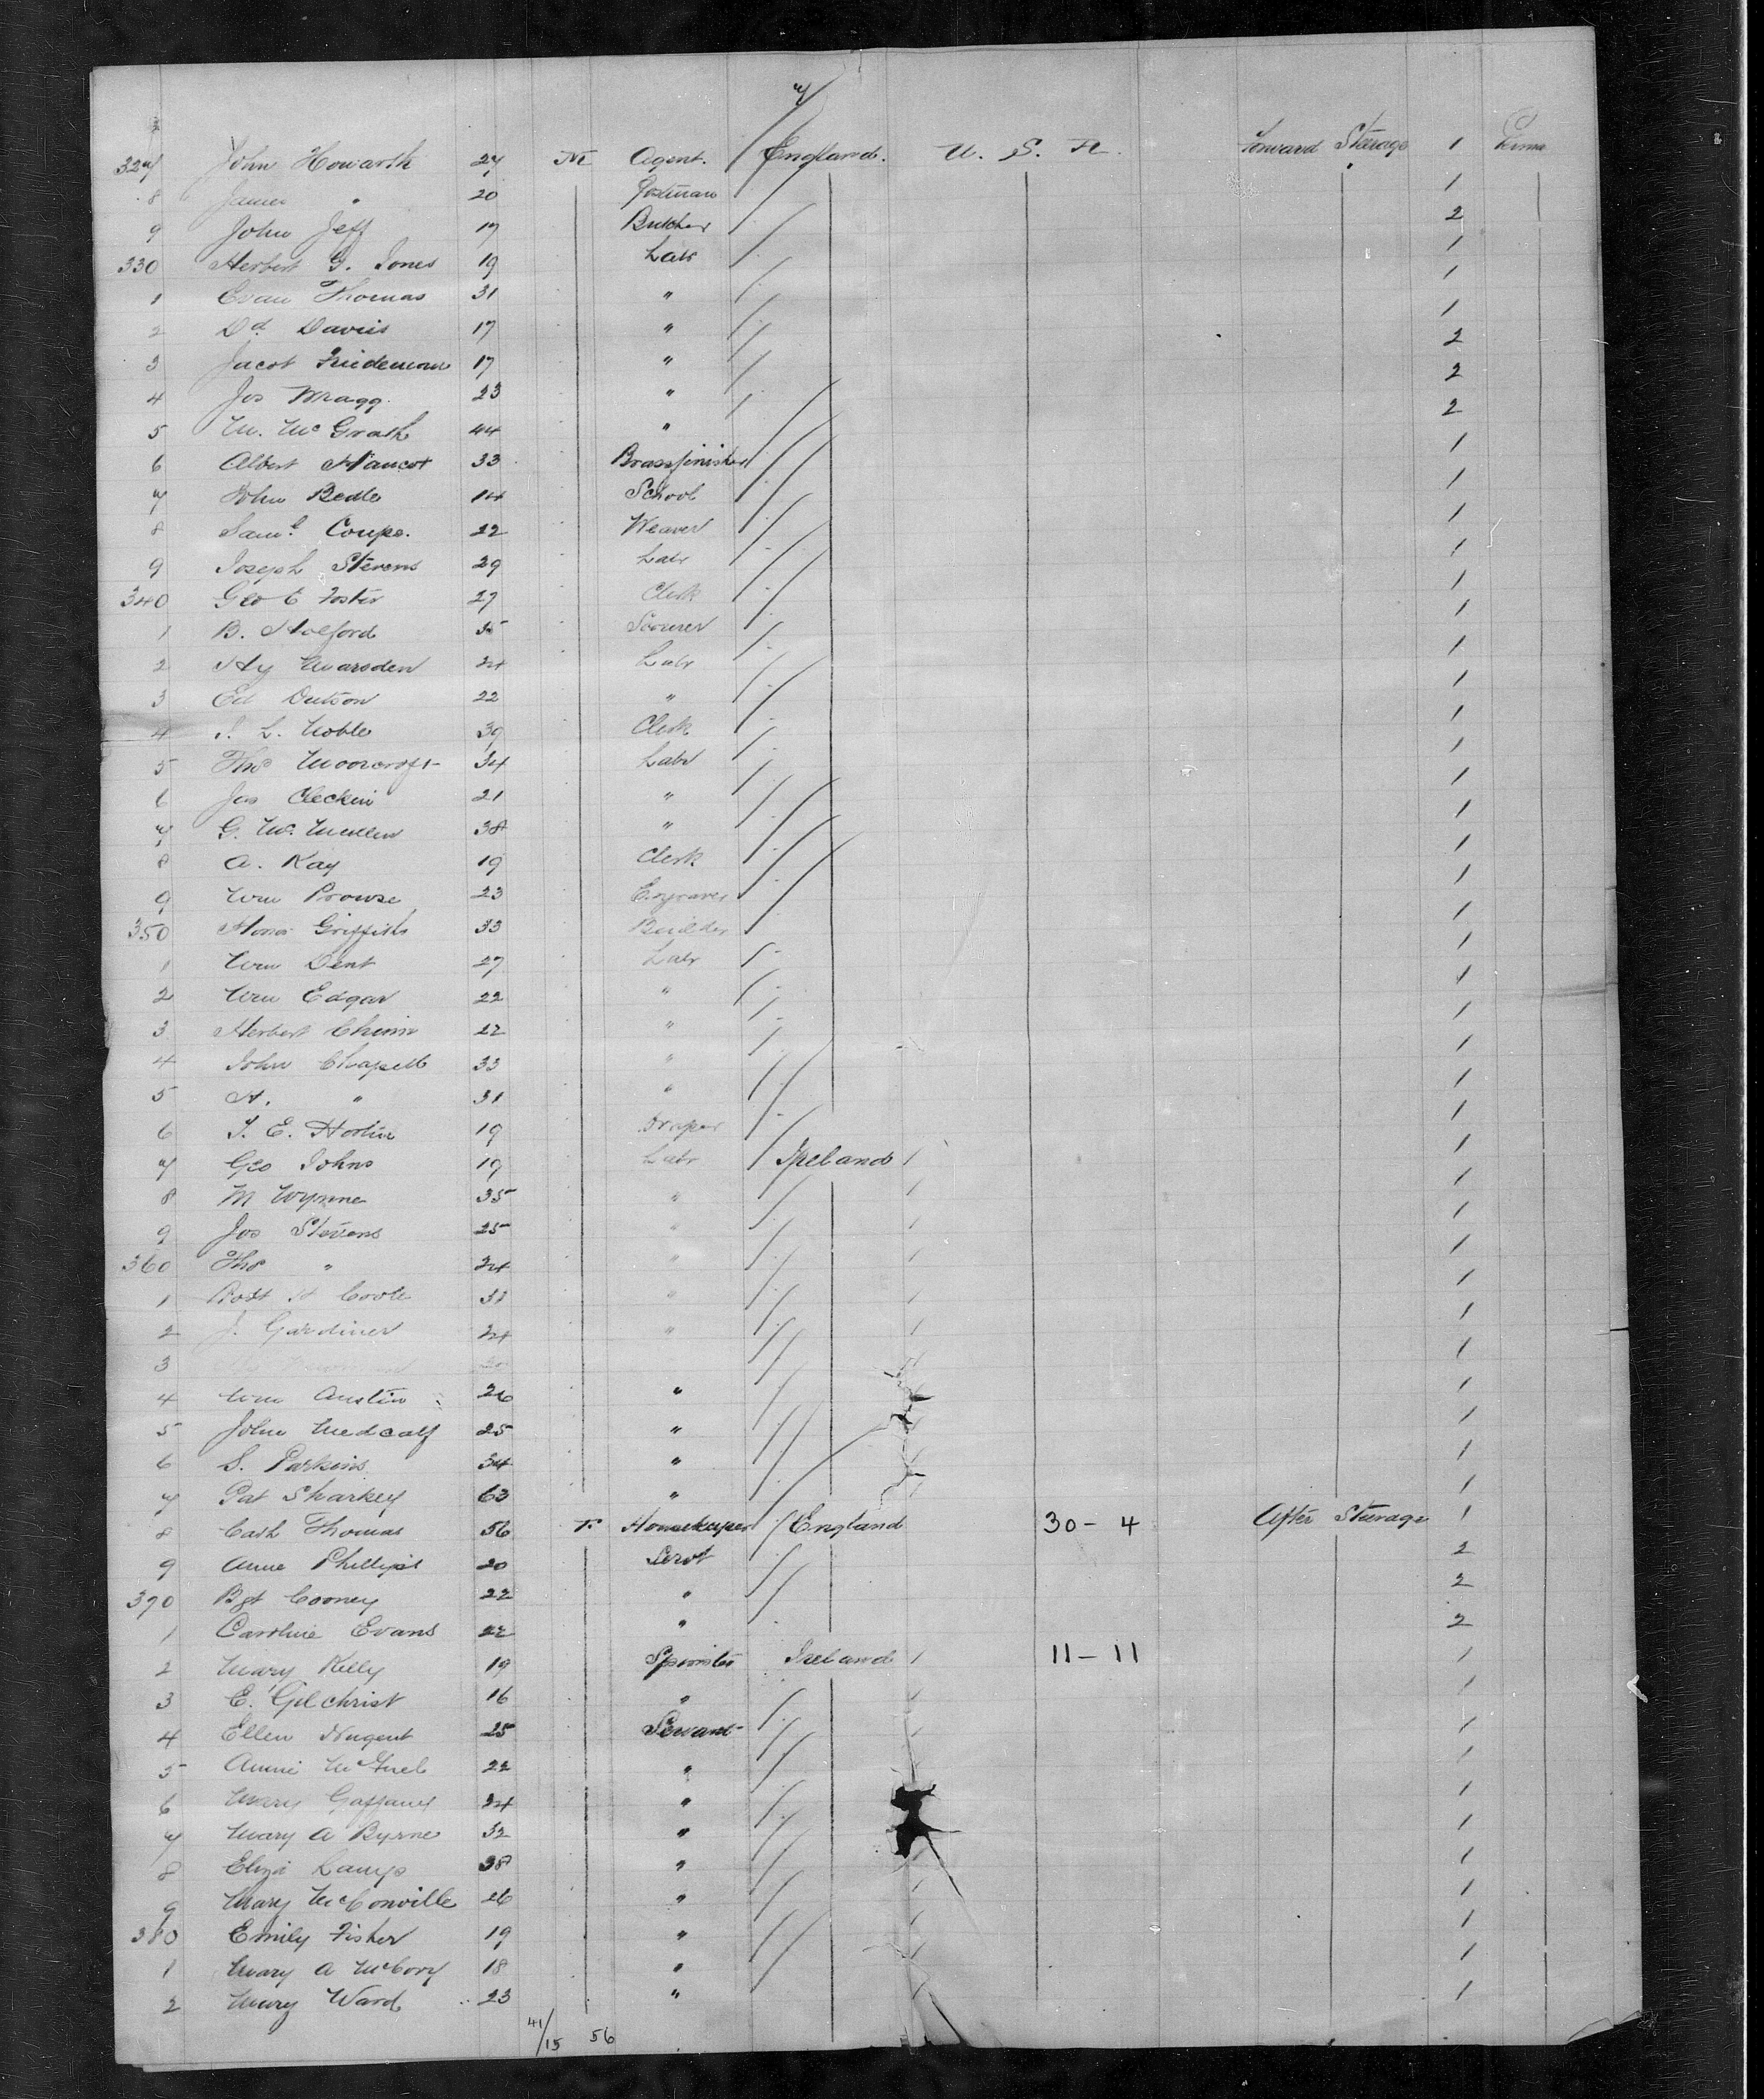 327 John Howarth 27 M Agent. England. U. S. A. Forward Steerage 1
8 James " 20 Postman 1
9 John Jeff 17 Butcher 2
330 Herbert G. Jones 19 Labr 1
1 Evan Thomas 31 " 1
2 Dd Davies 17 " 1
3 Jacob 17 " 2
4 Jos Wragg 23 " 2
5 M. McGrath 44 " 2
6 Albert Hancox 33 Brassfinisher 1
7 John Bedle 14 School 1
8 Saml Coupe. 22 Weaver 1
9 Joseph Stevens 29 Labr 1
340 Geo E Foster 27 Clerk 1
1 B. Holford Scourer 1
2 Hy Marsden 24 Labr 1
3 Ed Dutson 22 " 1
4 L. Noble 39 Clerk 1
5 Thos Moorcroft 34 Labr 1
6 Jas 21 " 1
7 G. McMullen 38 " 1
8 A. Kay 19 Clerk 1
9 Wm Prowse 23 Engraver 1
350 Griffiths 33 Builder 1
1 Wm Dent 27 Labr 1
2 Wm Edgar 22 " 1
3 Herbert 22 " 1
4 John Chapell 33 " 1
5 H. " 31 " 1
6 T. E. 19 Draper 1
7 Geo Johns 19 Labr Ireland 1
8 M Wynne 35 " 1
9 Jos Stevens 25 " 1
360 Thos " 24 " 1
1 Robt H Coole 31 " 1
2 J. Gardiner 24 " 1
3 1
4 Wm Austin 26 " 1
5 John Medcalf 25 " 1
6 S. Parkins 34 " 1
7 Pat Sharkey 63 " 1
8 Cath Thomas 56 F. Housekeeper England 30-4 After Steerage 1
9 Anne Phillips 20 Servt 2
370 Bgt Cooney 22 " 2
1 Caroline Evans 22 " 2
2 Mary Kelly 19 Spinster Ireland 11-11 1
3 E. Gilchrist 16 " 1
4 Ellen Nugent 25 Servant 1
5 Annie 22 " 1
6 Mary Gaffaney 24 " 1
7 Mary A Byrne 32 " 1
8 Eliza Lamp 38 " 1
9 Mary McConville 26 " 1
380 Emily Fisher 19 " 1
1 Mary A McCory 18 " 1
2 Mary Ward 23 " 1
41/15 56